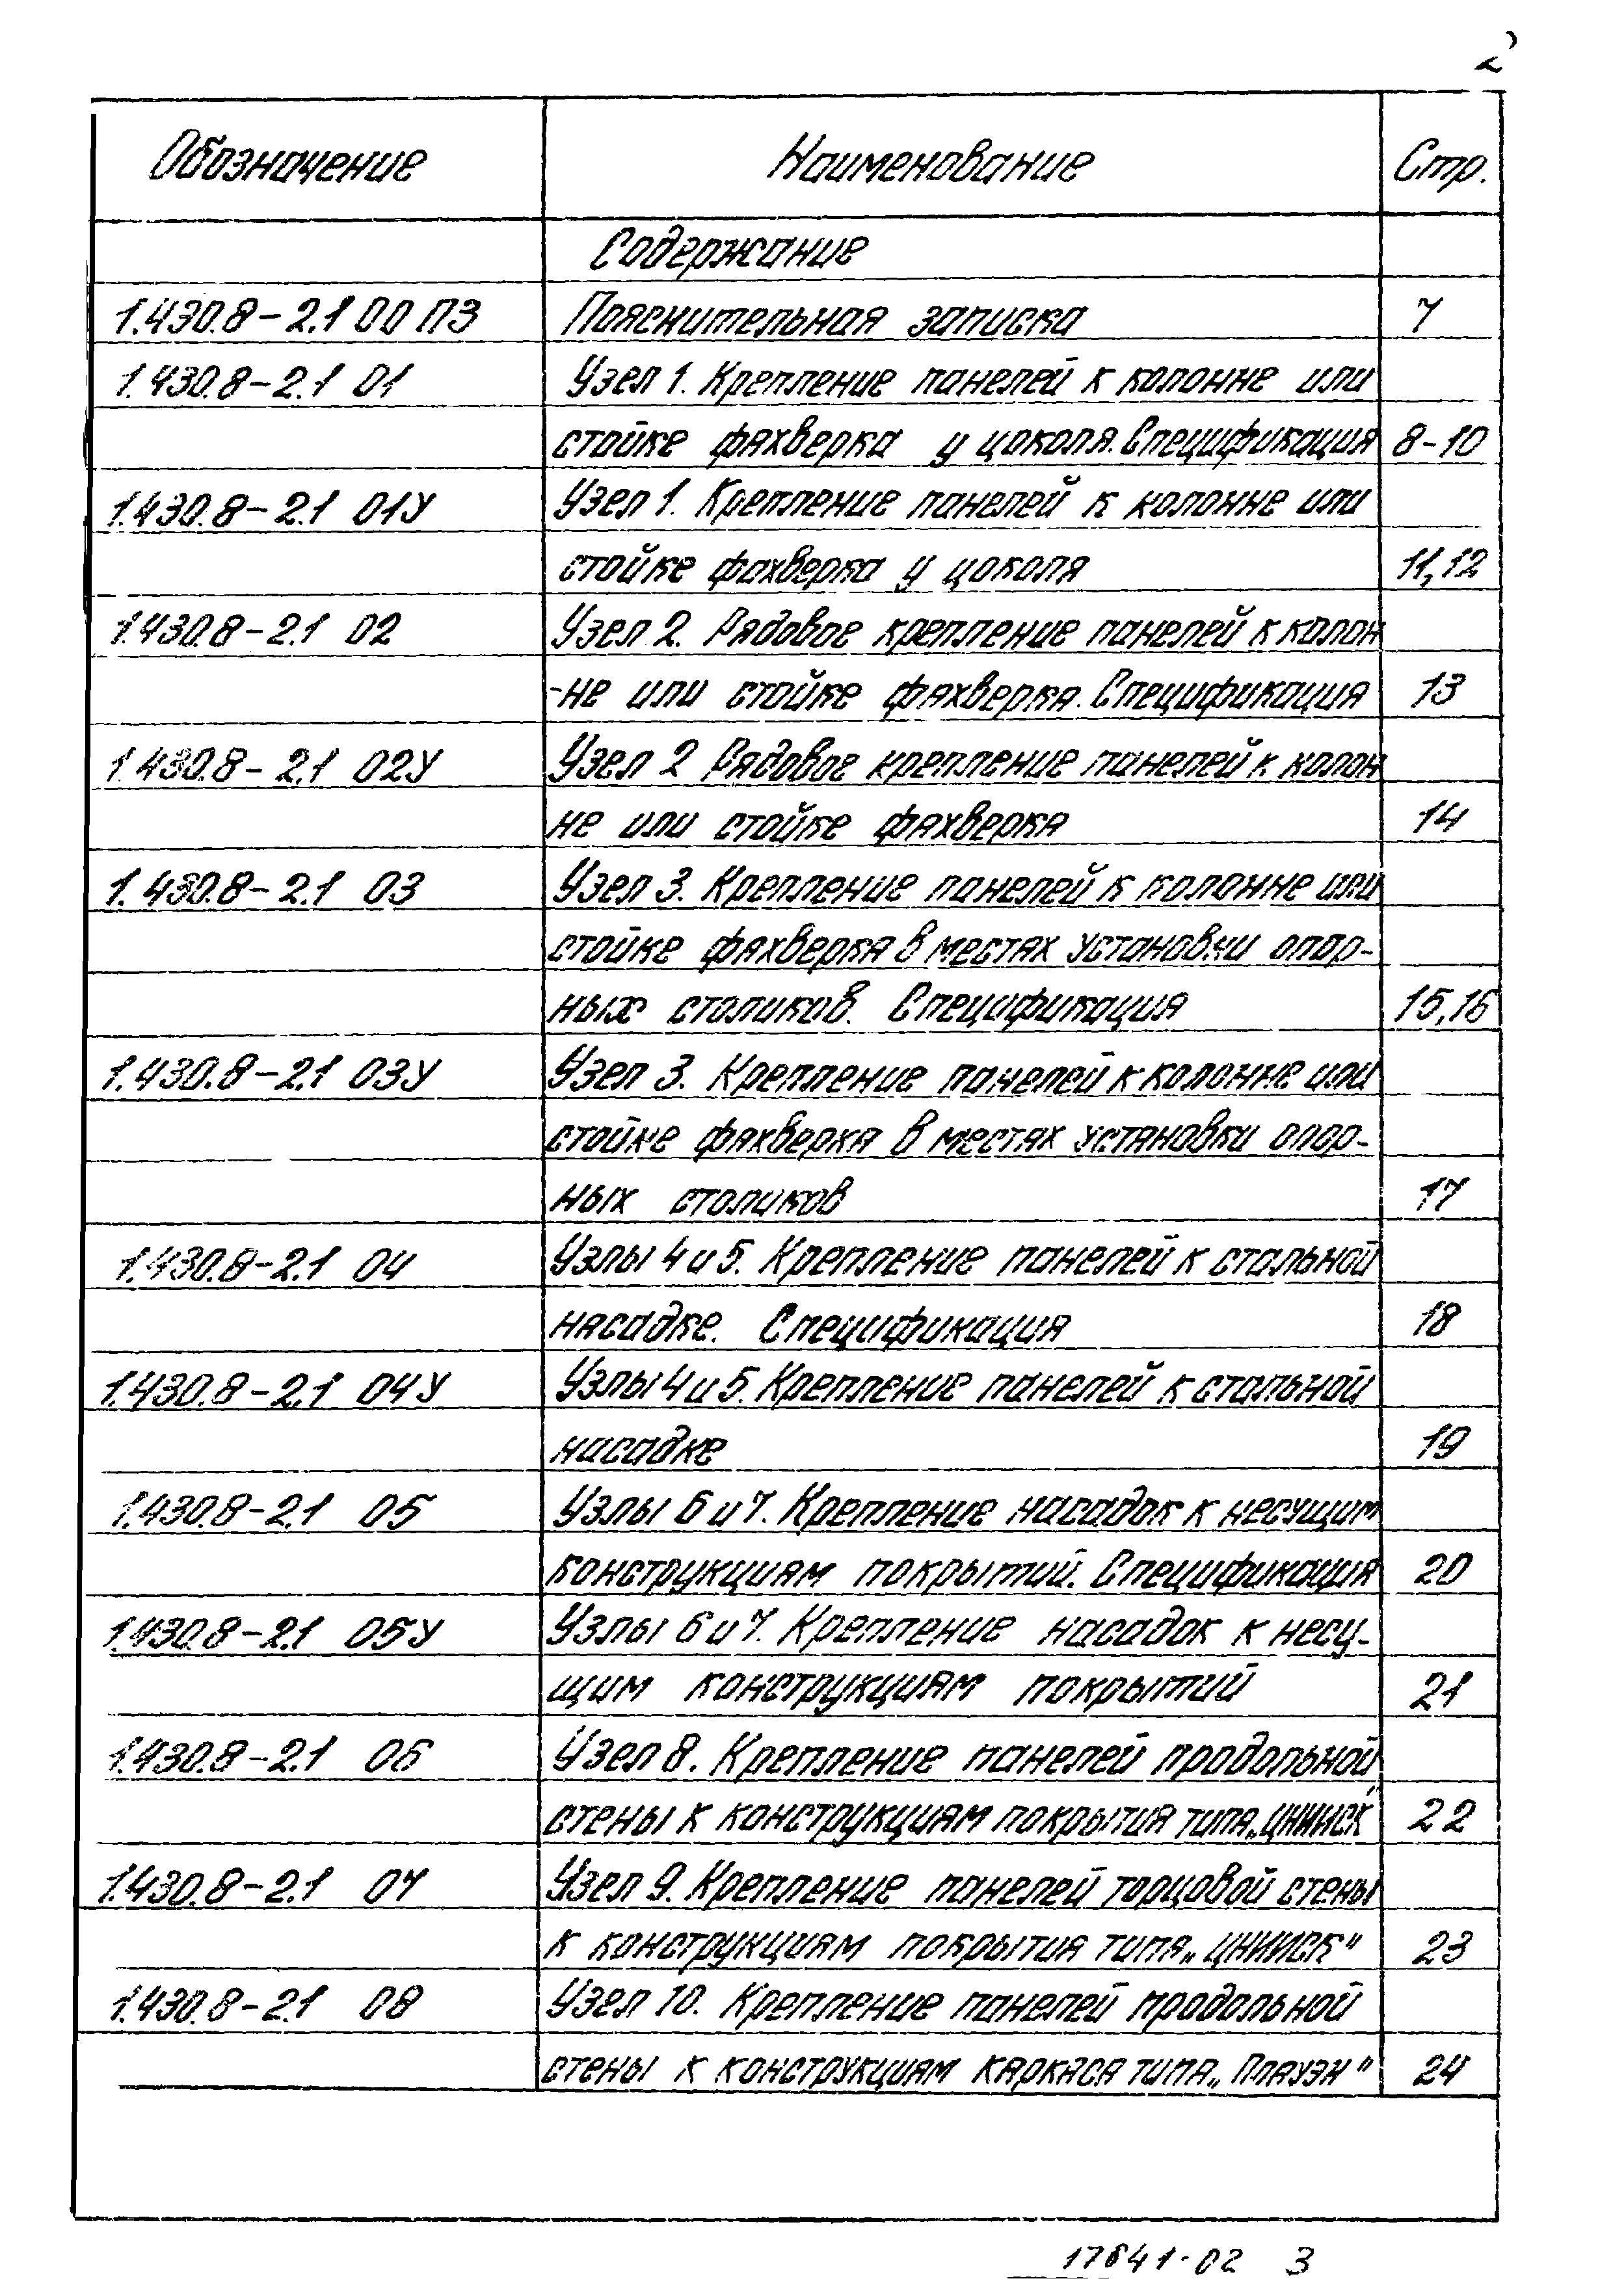 2
Обозначение Наименование Стр.
Содержание
1.430.8-2.1 00 ПЗ Пояснительная записка 7
1.430.8-2.1 01 Узел 1. Крепление панелей к колонне или
стойке фахверка у цоколя. Спецификация 8-10
1.430.8-2.1 01У Узел 1. Крепление панелей к колонне или
стойке фахверка у цоколя 11,12
1.430.8-2.1 02 Узел 2. Рядовое крепление панелей к колон
-не или стойке фахверка. Спецификация 13
1.430.8-2.1 02У Узел 2 Рядовое крепление панелей к колон
не или стойке фахверка 14
1.430.8-2.1 03 Узел 3. Крепление панелей к колонне или
стойке фахверка в местах установки опор-
ных столиков. Спецификация 15,16
1.430.8-2.1 03У Узел 3. Крепление панелей к колонне или
стойке фахверка в местах установки опор-
ных столиков 17
1.430.8-2.1 04 Узлы 4 и 5. Крепление панелей к стальной
насадке. Спецификация 18
1.430.8-2.1 04У Узлы 4 и 5. Крепление панелей к стальной
насадке 19
1.430.8-2.1 05 Узлы 6 и 7. Крепление насадок к несущим
конструкциям покрытий. Спецификация 20
1.430.8-2.1 05У Узлы 6 и 7. Крепление насадок к несу-
щим конструкциям покрытий 21
1.430.8-2.1 06 Узел 8. Крепление панелей продольной
стены к конструкциям покрытия типа „ЦНИИСК" 22
1.430.8-2.1 07 Узел 9. Крепление панелей торцовой стены
к конструкциям покрытия типа „ЦНИИСК" 23
1.430.8-2.1 08 Узел 10. Крепление панелей продольной
стены к конструкциям каркаса типа „Плауэн" 24
17641-02 3